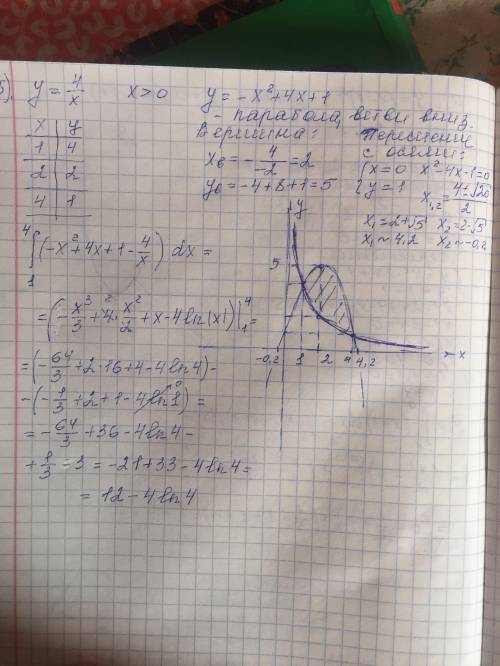 5). y = 4/x    x > 0    y = -x² + 4x + 1
- парабола, ветви вниз.
x | y
1 | 4
2 | 2
4 | 1
Вершина:
x_в = -4/-2 = 2
y_в = -4+8+1=5
Пересечение
с осями:
{x=0   x²-4x-1=0
{y=1   x₁,₂ = (4±√20)/2
x₁=2+√5   x₂=2-√5
x₁≈4,2   x₂≈-0,2
∫₁⁴ (-x²+4x+1-4/x) dx =
= (-x³/3 + 4·x²/2 + x - 4ln|x|)|₁⁴ =
= (-64/3 + 2·16+4-4ln4) -
-(-1/3+2+1-4ln1) =
= -64/3 + 36 - 4ln4 -
+ 1/3 - 3 = -21+33-4ln4 =
= 12 - 4ln4
y
5
-0,2 1 2 4 4,2 x